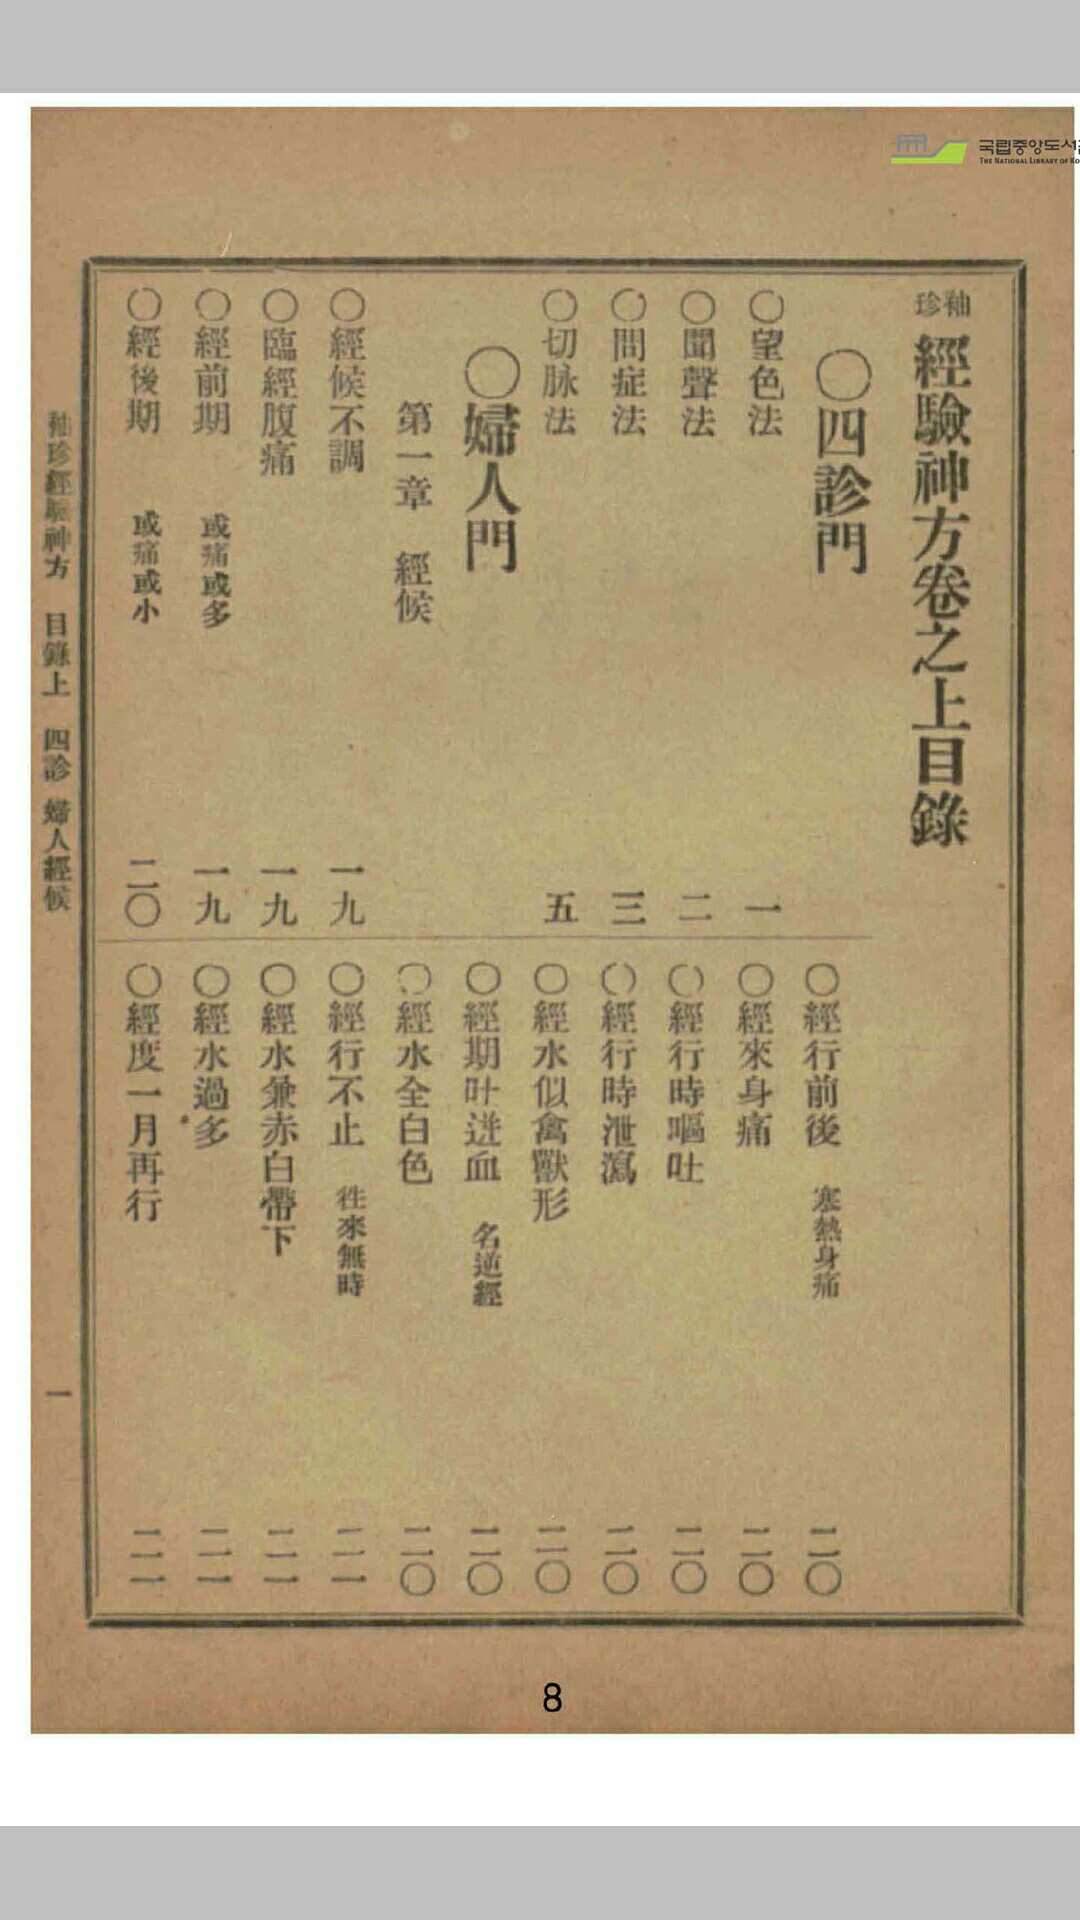 국립중앙도서관
THE NATIONAL LIBRARY OF KO
袖珍 經驗神方卷之上目錄
〇四診門
〇望色法 一
〇聞聲法 二
〇問症法 三
〇切脉法 五
〇婦人門
第一章 經候
〇經候不調 一九
〇臨經腹痛 一九
〇經前期 或痛或多 一九
〇經後期 或痛或小 二〇
〇經行前後 寒熱身痛 二〇
〇經來身痛 二〇
〇經行時嘔吐 二〇
〇經行時泄瀉 二〇
〇經水似禽獸形 二〇
〇經期吐迸血 名逆經 二〇
〇經水全白色 二〇
〇經行不止 徃來無時 二一
〇經水兼赤白帶下 二一
〇經水過多 二一
〇經度一月再行 二一
袖珍經驗神方 目錄上 四診 婦人經候 一
8